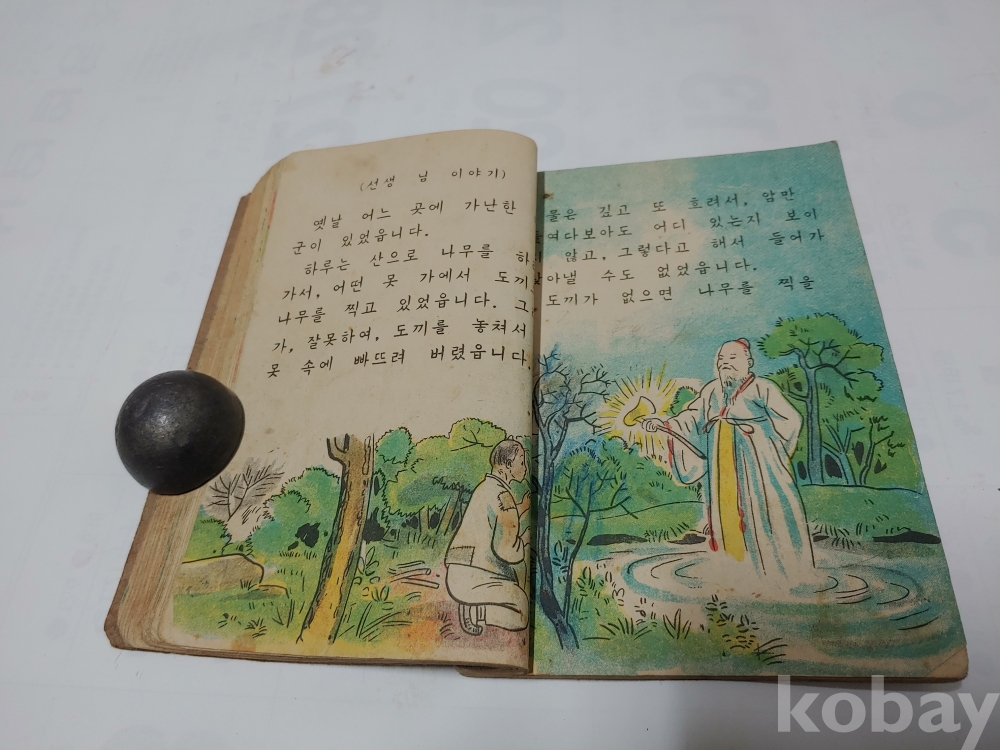 (선생 님 이야기)
옛날 어느 곳에 가난한
군이 있었읍니다.
하루는 산으로 나무를 하
가서, 어떤 못 가에서 도끼
나무를 찍고 있었읍니다. 그
가, 잘못하여, 도끼를 놓쳐서
못 속에 빠뜨려 버렸읍니다.
물은 깊고 또 흐려서, 암만
여다보아도 어디 있는지 보이
않고, 그렇다고 해서 들어가
아낼 수도 없었읍니다.
도끼가 없으면 나무를 찍을
kobay